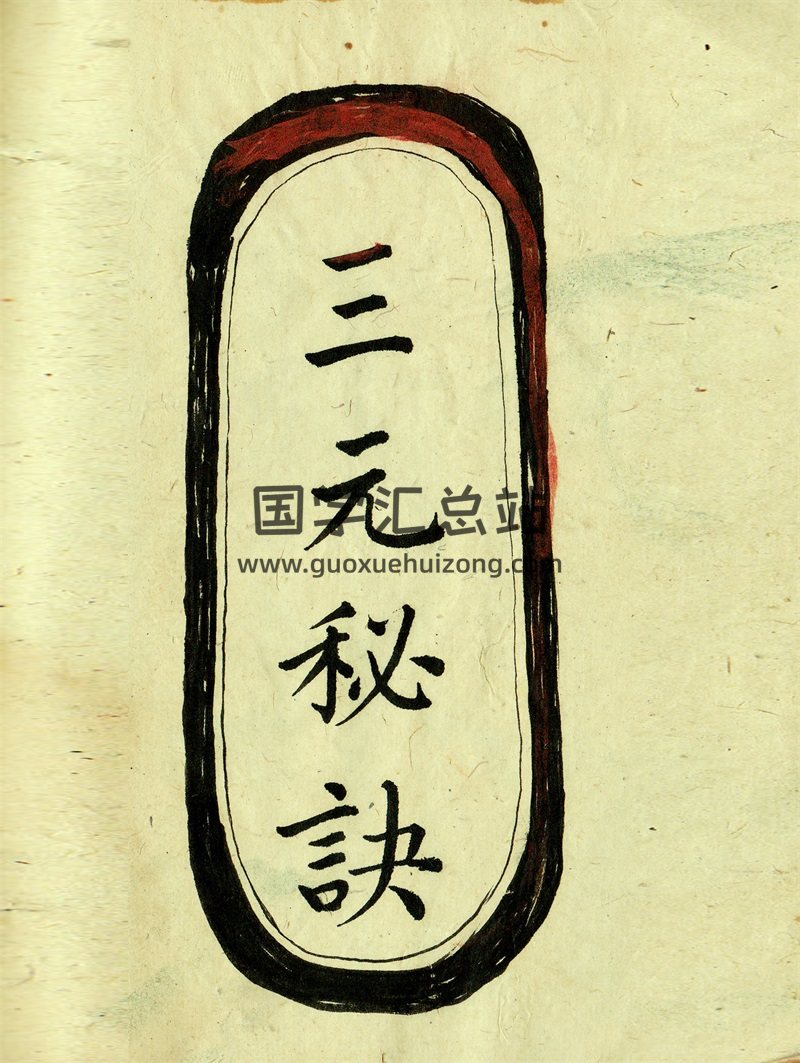 三元秘訣
国学汇总站
www.guoxuehuizong.com